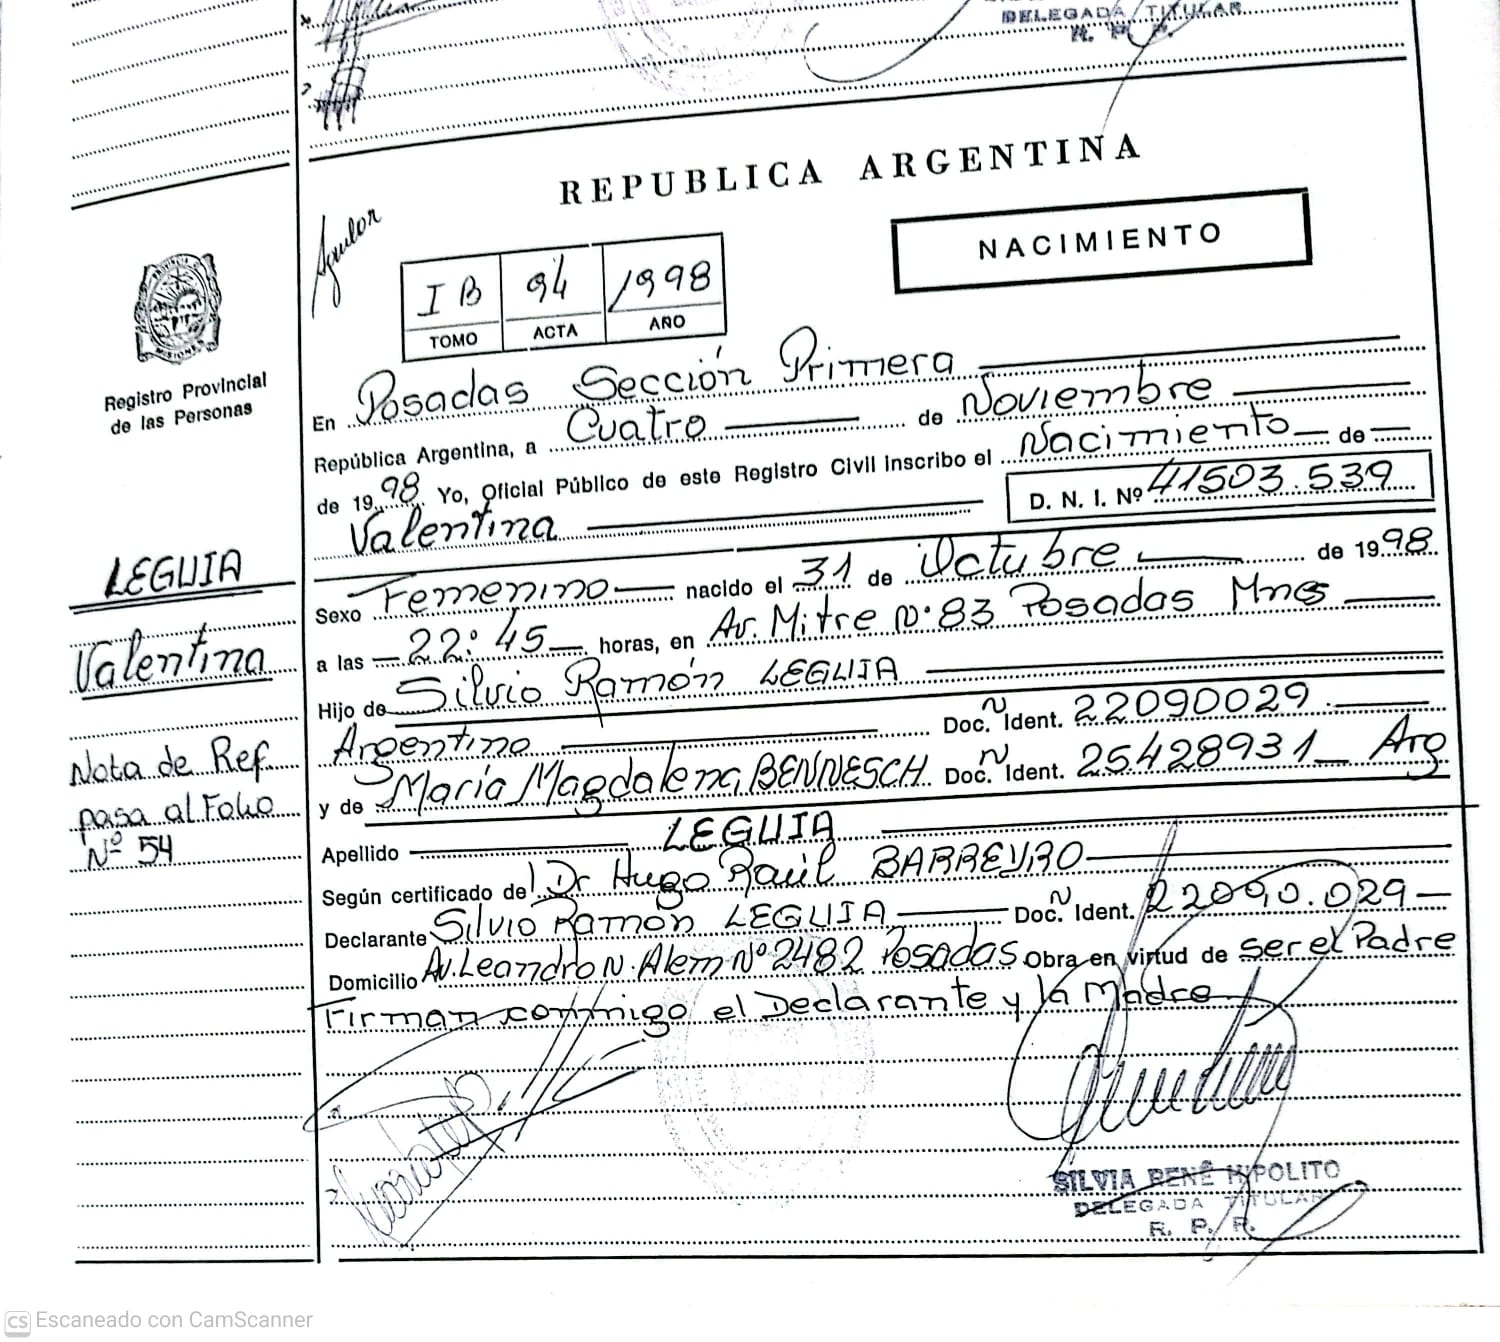 DELEGADA TITULAR
R. P. P.
REPUBLICA ARGENTINA
NACIMIENTO
Aguilar
I B 94 1998
TOMO ACTA AÑO
PROVINCIA DE MISIONES
Registro Provincial
de las Personas
En Posadas Sección Primera
República Argentina, a Cuatro de Noviembre
de 1998 Yo, Oficial Público de este Registro Civil inscribo el Nacimiento de
Valentina D. N. I. Nº 41503.539
Sexo Femenino nacido el 31 de Octubre de 1998
a las 22:45 horas, en Av. Mitre Nº 83 Posadas Mnes
Hijo de Silvio Ramón LEGUIA
Argentino Doc. N Ident. 22090029
y de María Magdalena BENNESCH Doc. N Ident. 25428931 Arg
Apellido LEGUIA
Según certificado del Dr Hugo Raúl BARREYRO
Declarante Silvio Ramón LEGUIA Doc. N Ident. 22090.029
Domicilio Av. Leandro N. Alem Nº 2482 Posadas Obra en virtud de ser el Padre
Firman conmigo el Declarante y la Madre
LEGUIA
Valentina
Nota de Ref.
pasa al Folio
Nº 54
SILVIA RENÉ HIPOLITO
DELEGADA TITULAR
R. P. P.
CS Escaneado con CamScanner